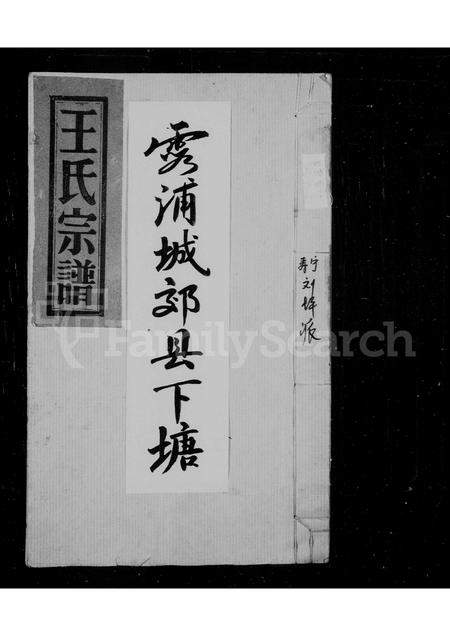 王氏宗譜
霞浦城郊县下塘
寿宁刘坪派
FamilySearch